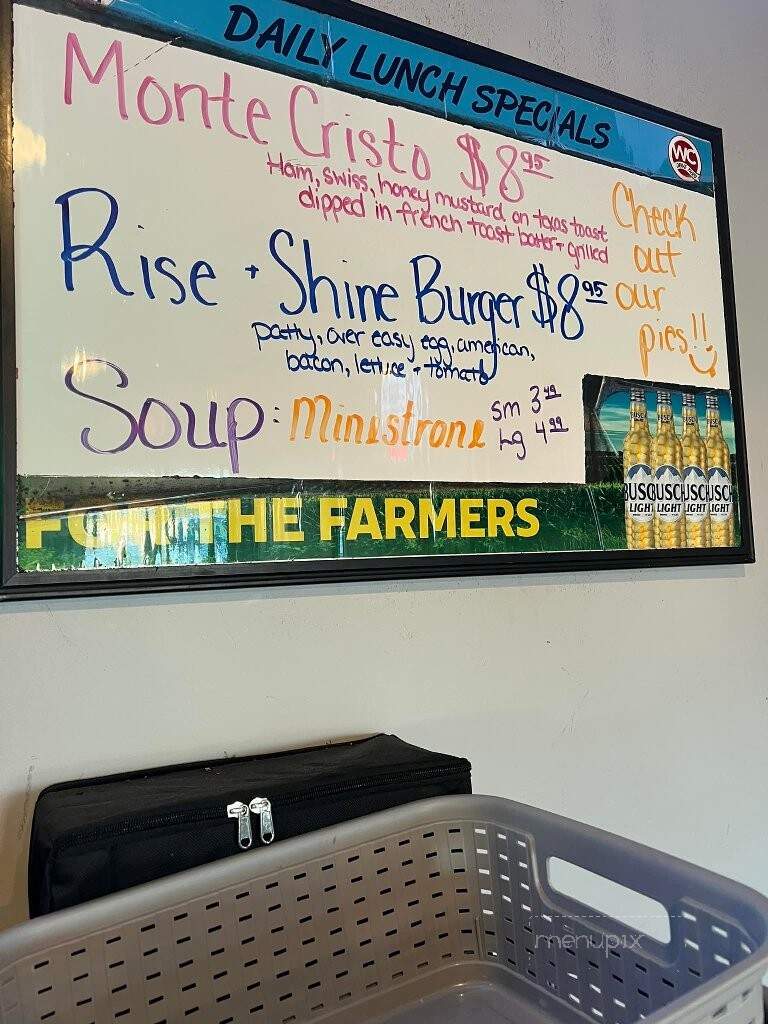 DAILY LUNCH SPECIALS
WC
Monte Cristo $8.95
Ham, swiss, honey mustard on texas toast
dipped in french toast batter + grilled
Rise + Shine Burger $8.95
patty, over easy egg, american,
bacon, lettuce + tomato
Soup: Minestrone
sm 3.49
Lg 4.99
Check
out
our
pies!!
FOR THE FARMERS
BUSCH BUSCH BUSCH BUSCH
LIGHT LIGHT LIGHT LIGHT
menupix